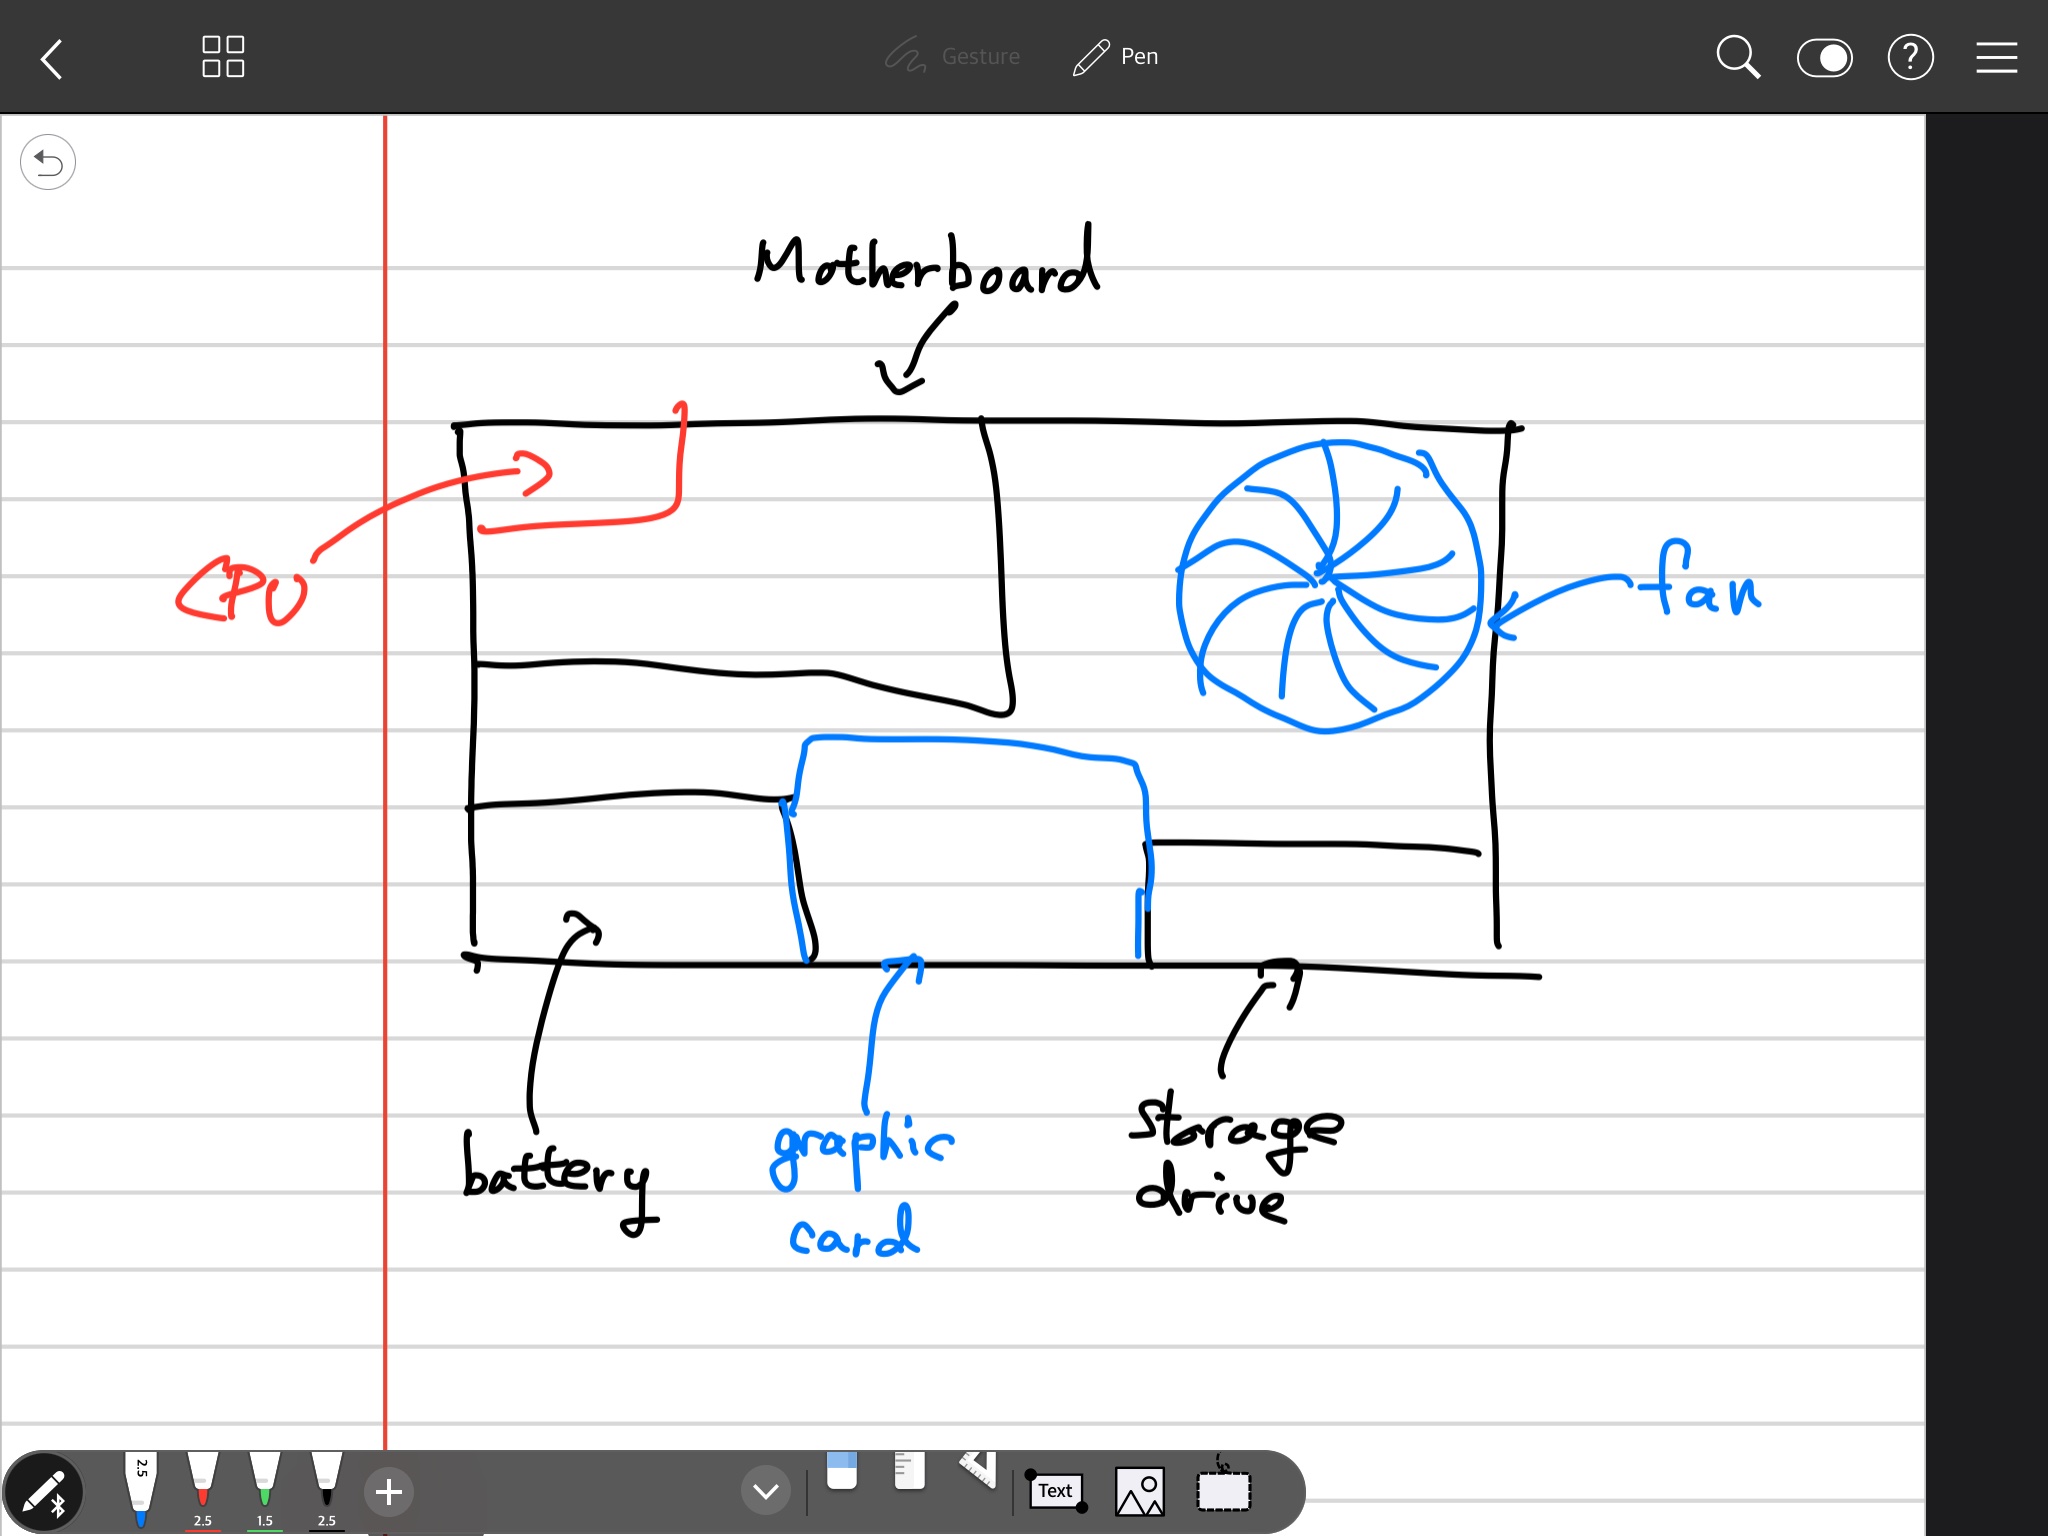 Gesture
Pen
Motherboard
CPU
fan
battery
graphic
card
Storage
drive
2.5
2.5
1.5
2.5
Text